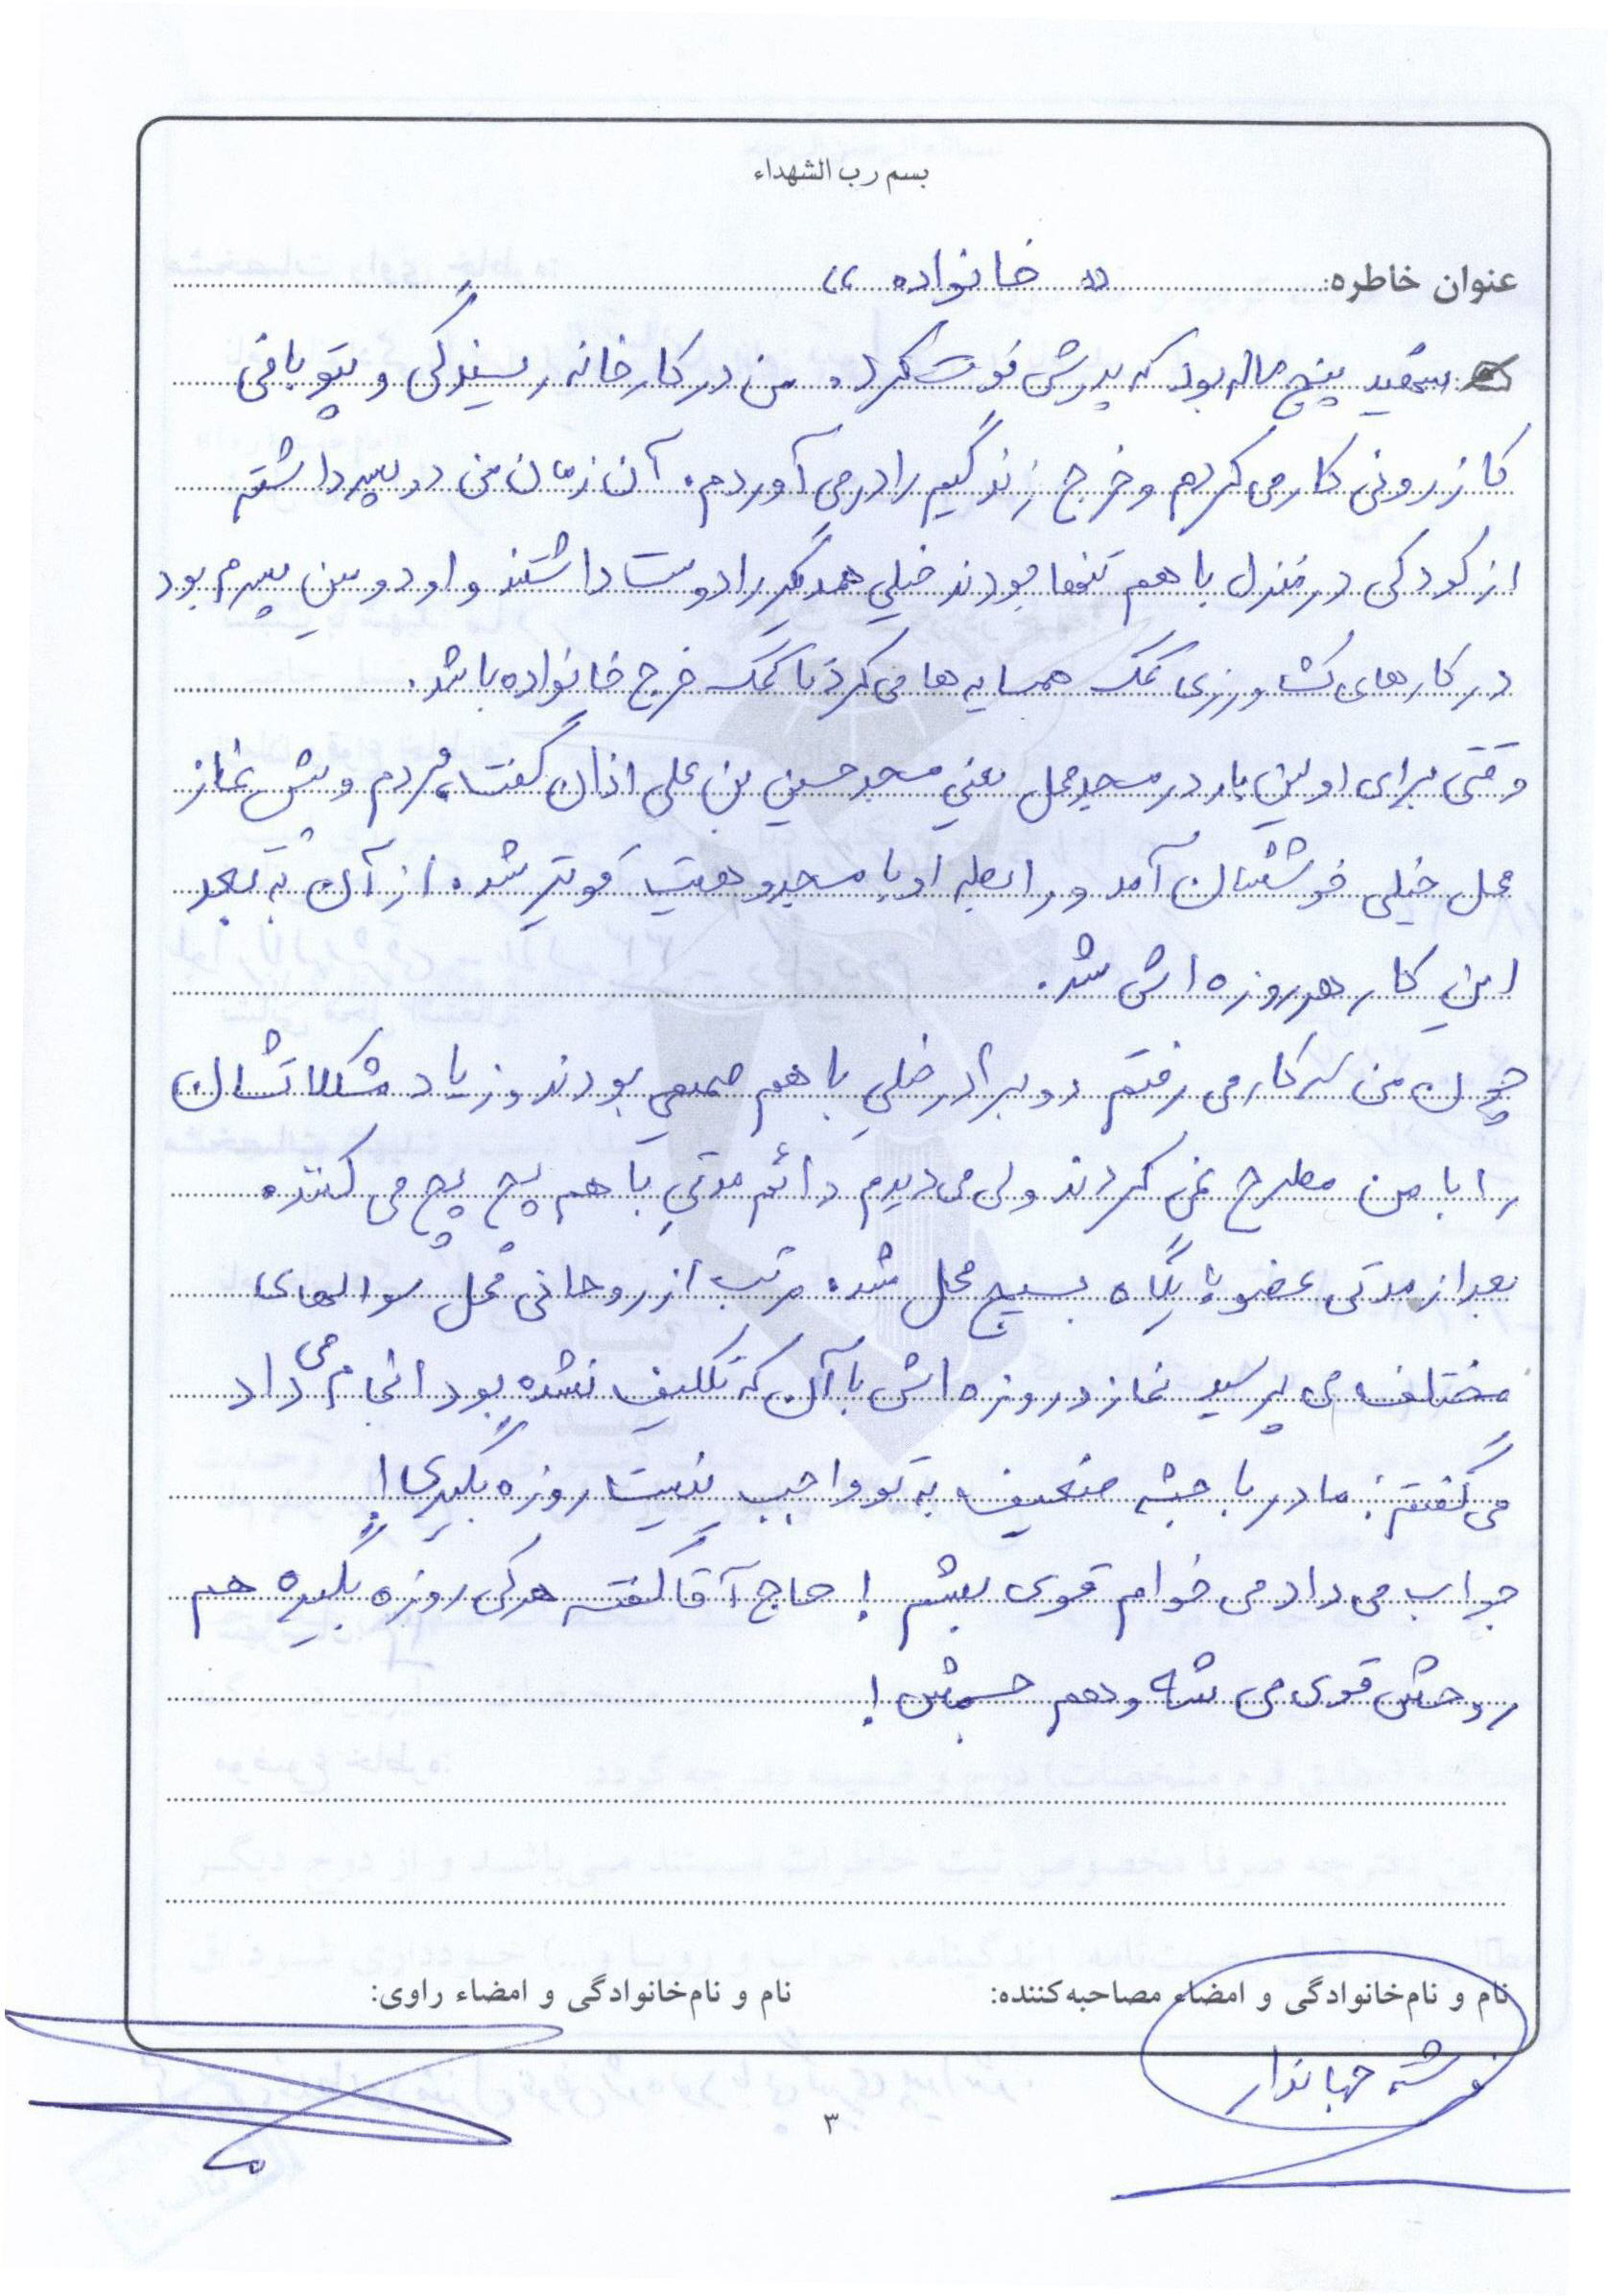 بسم رب الشهداء
عنوان خاطره: « خانواده »
سعید پنج ساله بود که پدرش فوت کرد. من در کارخانه ریسندگی و پتو بافی
کازرونی کار می کردم و خرج زندگیم را در می آوردم. آن زمان من دو پسر داشتم
از کودکی در منزل با هم تنها بودند خیلی همدیگر را دوست داشتند و او دومین پسرم بود
در کارهای کشاورزی کمک همسایه ها می کرد تا کمک خرج خانواده باشد.
وقتی برای اولین بار در مسجد محل یعنی مسجد حسین بن علی اذان گفت، مردم و پیش نماز
محل خیلی خوششان آمد و رابطه او با مسجد و هیئت قوی تر شد. از آن به بعد
این کار هر روزه اش شد.
چون من سرکار می رفتم دو برادر خیلی با هم صمیمی بودند و زیاد مشکلاتشان
را با من مطرح نمی کردند ولی می دیدم دائم مدتی با هم پچ پچ می کنند.
بعد از مدتی عضو پایگاه بسیج محل شد. مرتب از روحانی محل سوالهای
مختلف می پرسید نماز و روزه اش با آن که تکلیف نشده بود انجام می داد
می گفتم: مادر با جثه ضعیف به تو واجب نیست روزه بگیری!
جواب می داد می خوام قوی بشم! حاج آقا گفته هر کی روزه بگیره هم
روحش قوی می شه و هم جسمش!
نام و نام‌خانوادگی و امضاء مصاحبه‌کننده: نام و نام‌خانوادگی و امضاء راوی:
جهاندار
۳